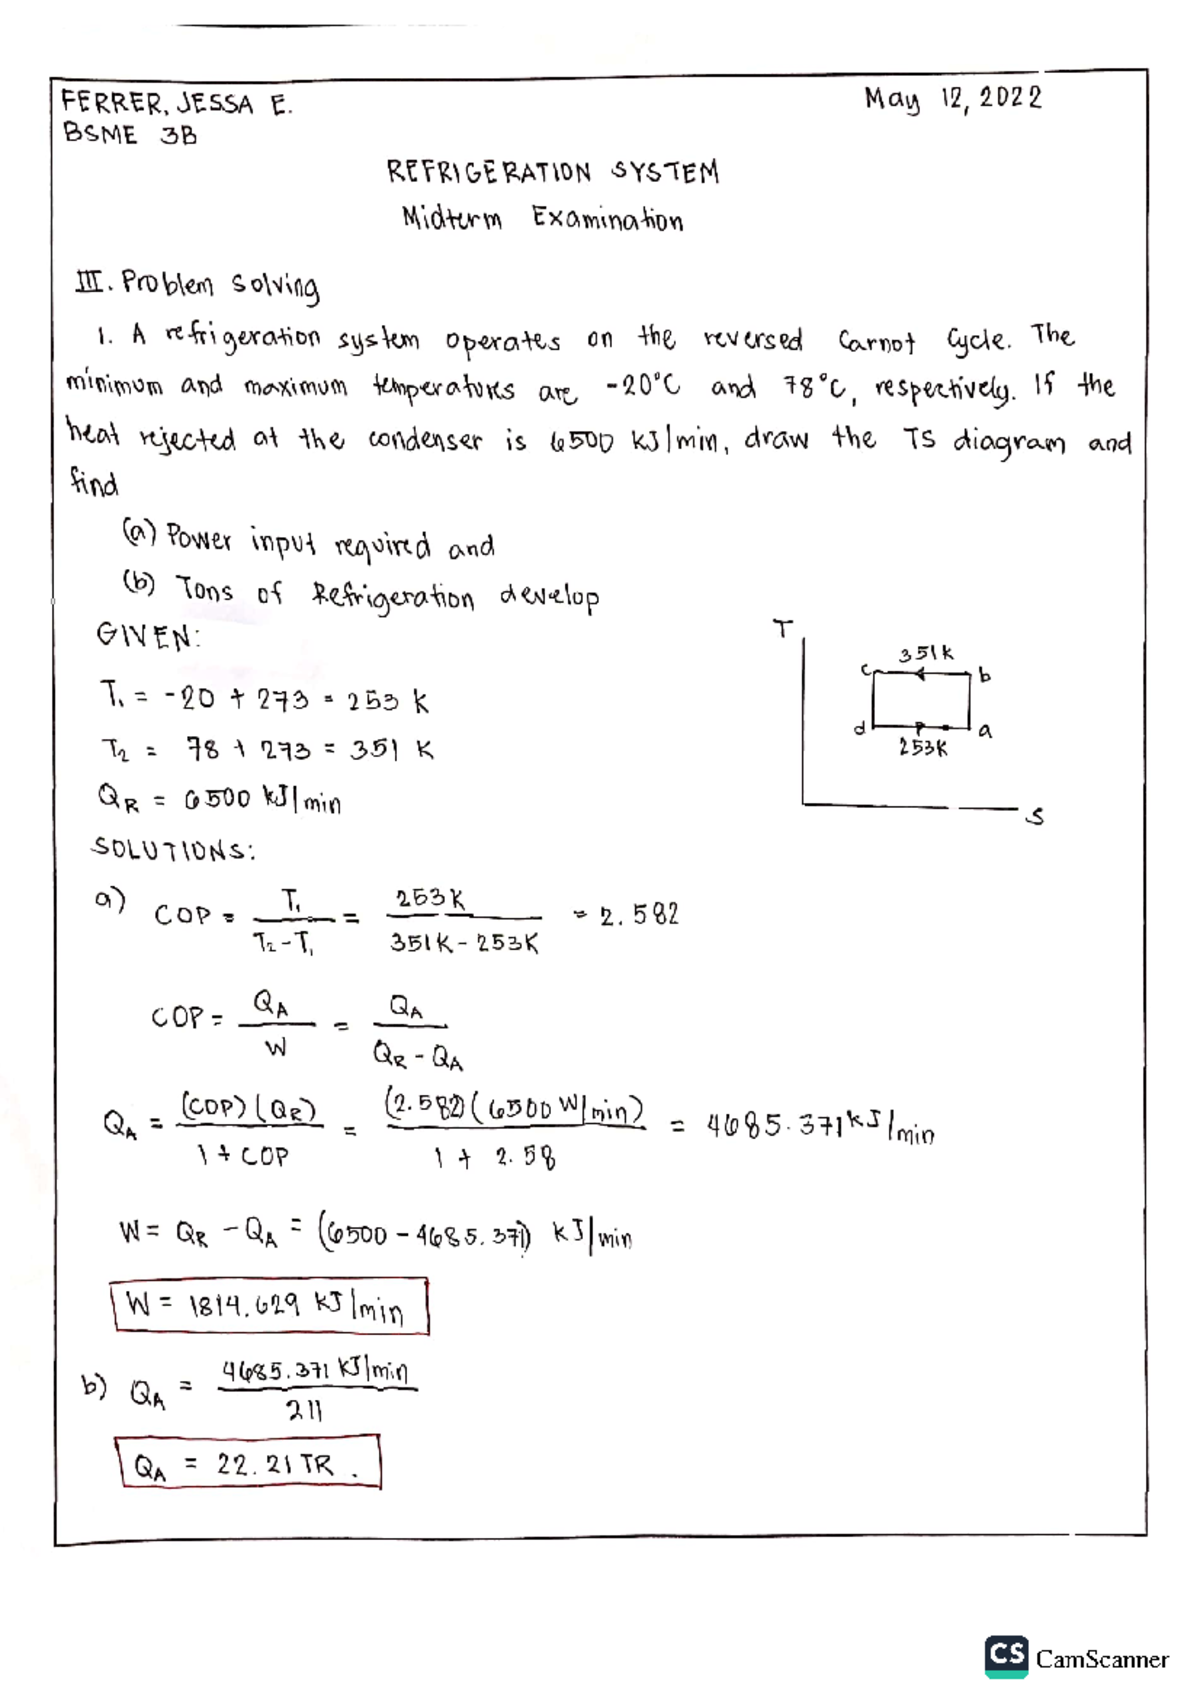 FERRER, JESSA E. May 12, 2022
BSME 3B
REFRIGERATION SYSTEM
Midterm Examination
III. Problem solving
1. A refrigeration system operates on the reversed Carnot Cycle. The
minimum and maximum temperatures are -20°C and 78°C, respectively. If the
heat rejected at the condenser is 6500 KJ/min, draw the TS diagram and
find
(a) Power input required and
(b) Tons of Refrigeration develop
GIVEN:
T₁ = -20 + 273 = 253 K
T₂ = 78 + 273 = 351 K
QR = 6500 KJ/min
T
351K
c b
d a
253K
S
SOLUTIONS:
a) COP = T₁ / T₂-T₁ = 253K / 351K - 253K = 2.582
COP = QA / W = QA / QR - QA
QA = (COP)(QR) / 1 + COP = (2.582)(6500 W/min) / 1 + 2.58 = 4685.371 KJ/min
W = QR - QA = (6500 - 4685.371) KJ/min
W = 1814.629 KJ/min
b) QA = 4685.371 KJ/min / 211
QA = 22.21 TR.
CS CamScanner